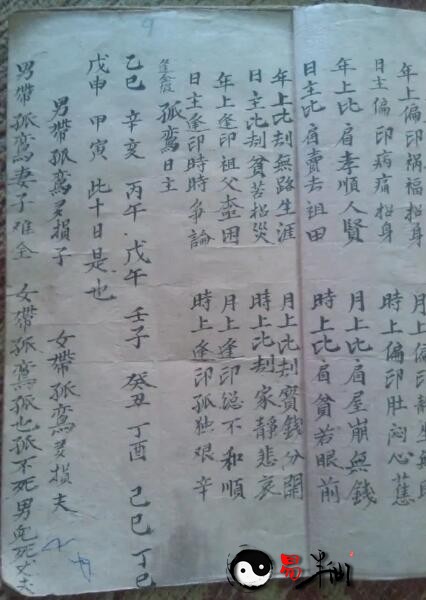 年上偏印祸福招身
日主偏印病痛招身 時上偏印肚闷心蕉
年上比肩孝順人賢 月上比肩屋崩無錢
日主比肩賣去祖田 時上比肩貧若眼前
年上比刦無路生涯 月上比刦寳錢分開
日主比刦貧苦招災 時上比刦家静悲哀
年上逢印祖父 困 月上逢印總不和順
日主逢印時時爭論 時上逢印孤独艰辛
孤鸾日主
乙巳 辛亥 丙午 戊午 壬子 癸丑 丁酉 己巳 丁巳
戊申 甲寅 此十日是也
男帶孤鸾多損子 女帶孤鸾多損夫
男帶孤鸾妻子难全 女帶孤鸾孤也孤不死男兒死丈夫
9
易